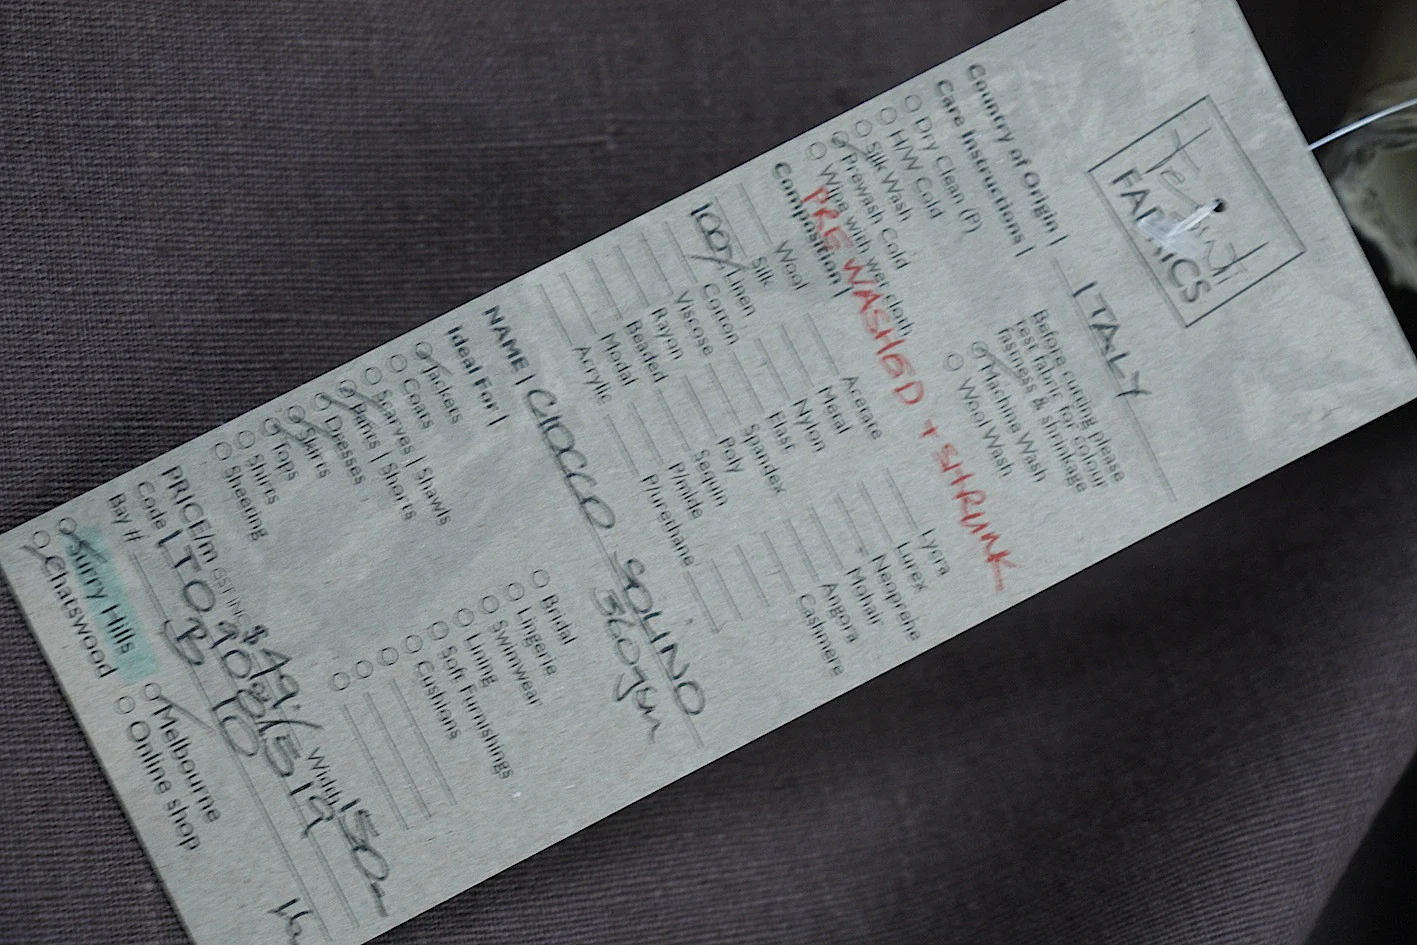 The Fabric
FABRICS
Country of Origin | ITALY
Care Instructions |
Dry Clean (P)
H/W Cold
Silk Wash
Prewash Cold
Wipe with wet cloth
Before cutting please
test fabric for colour
fastness & shrinkage
Machine Wash
Wool Wash
PRE WASHED + SHRUNK
Composition |
Wool
Silk
100% Linen
Cotton
Viscose
Rayon
Beaded
Modal
Acrylic
Acetate
Metal
Nylon
Elast
Spandex
Poly
Sequin
P/mide
P/urethane
Lycra
Lurex
Neoprene
Mohair
Angora
Cashmere
NAME | CIOCCO SOLINO
360gsm
Ideal For |
Jackets
Coats
Scarves | Shawls
Pants | Shorts
Dresses
Skirts
Tops
Shirts
Sheering
Bridal
Lingerie
Swimwear
Lining
Soft Furnishings
Cushions
PRICE/m GST INC $49./ Width 150
Code
Bay # B 10
Surry Hills
Chatswood
Melbourne
Online shop